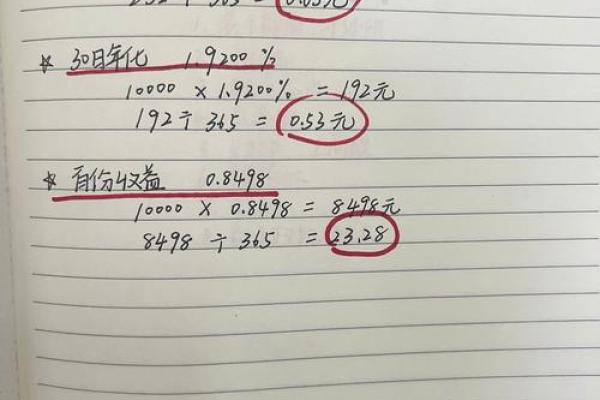 ÷ 365 = 0.63元
* 30日年化 1.9200%
10000 × 1.9200% = 192元
192 ÷ 365 = 0.53元
* 百份收益 0.8498
10000 × 0.8498 = 8498元
8498 ÷ 365 = 23.28